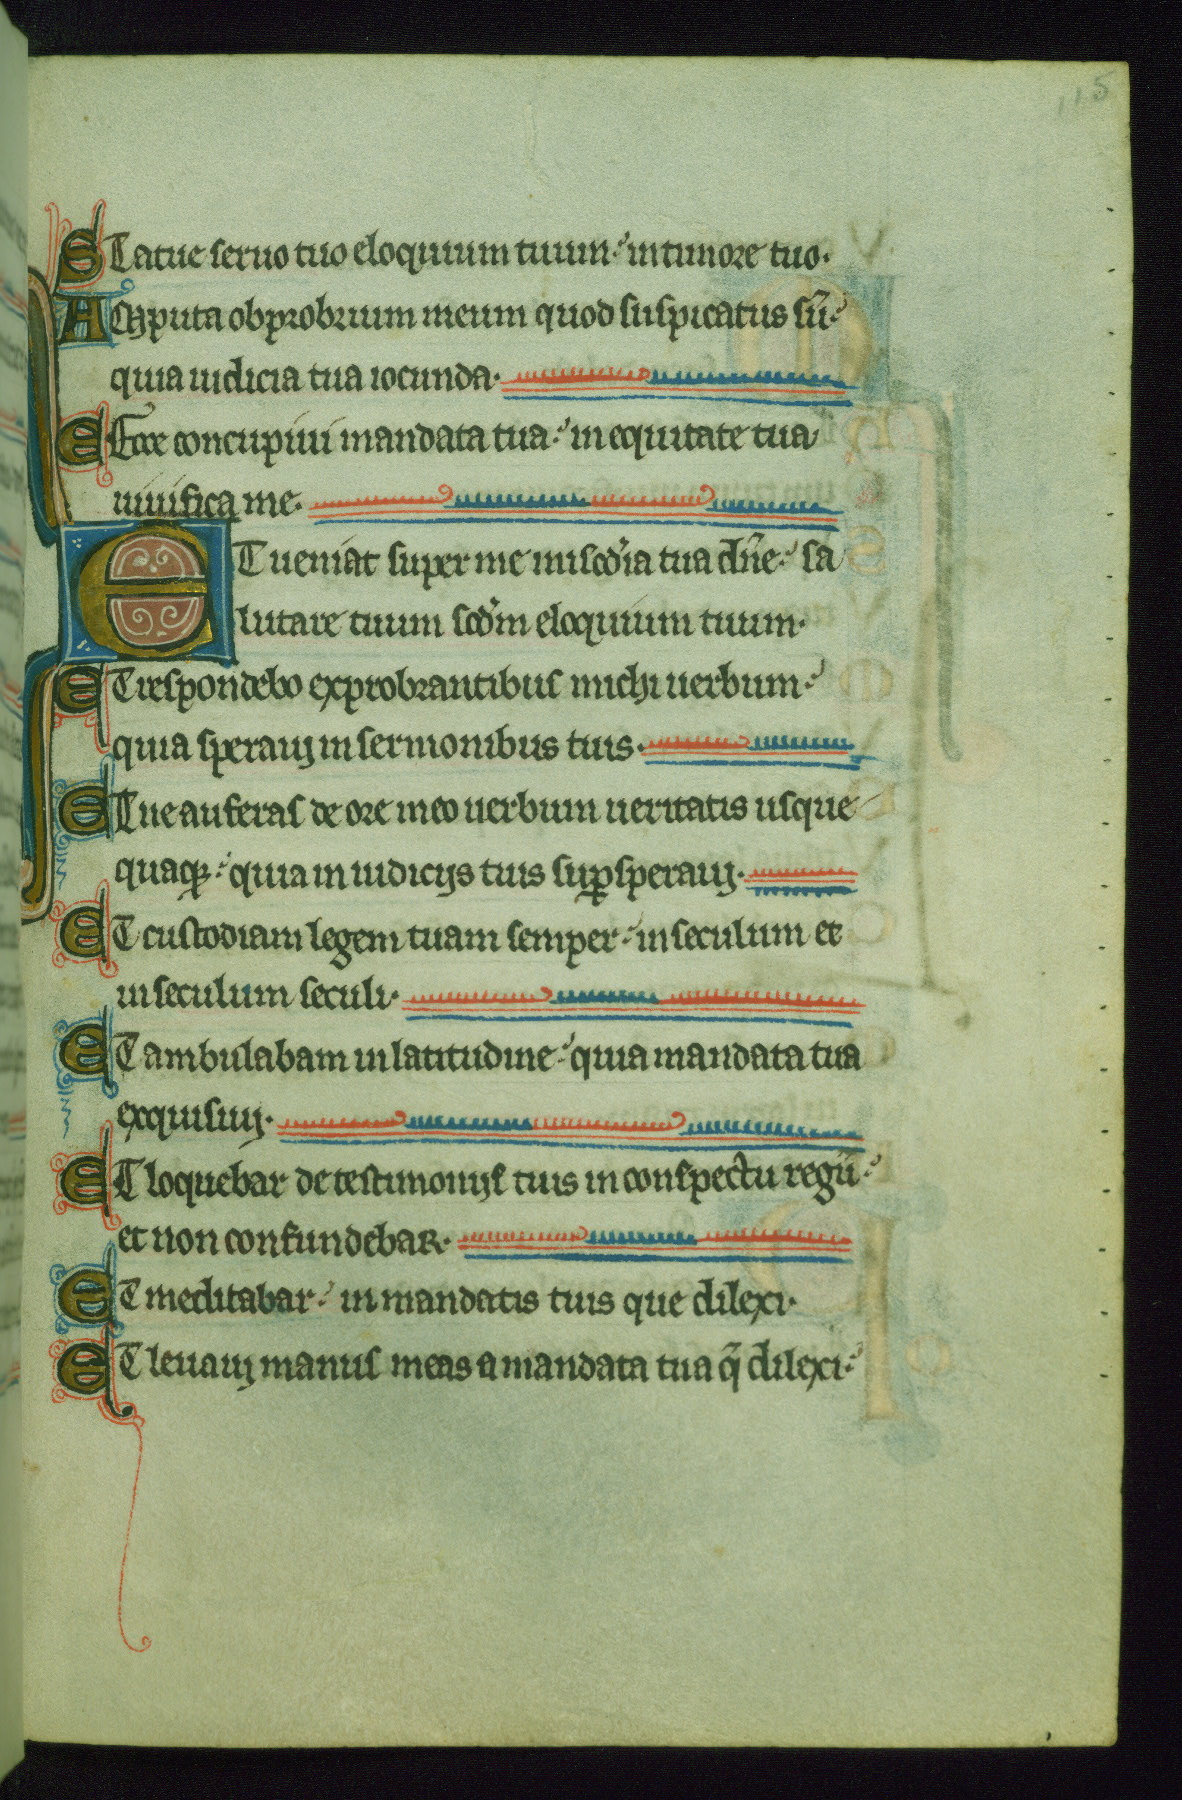 115
STatue seruo tuo eloquium tuum·́ in timore tuo·
AMputa obprobrium meum quod suspicatus sũ·́
quia iudicia tua iocunda·
ECce concupiui mandata tua·́ in equitate tua
uiuifica me·
ET ueniat super me misc̃dia tua dñe·́ sa
lutare tuum scd̃m eloquium tuum·
ET respondebo exprobrantibus michi uerbum·́
quia sperauj in sermonibus tuis·
ET ne auferas de ore meo uerbum ueritatis usque
quaqꝫ·́ quia in iudicijs tuis suꝑsperauj·
ET custodiam legem tuam semper·́ in seculum et
in seculum seculi·
ET ambulabam in latitudine·́ quia mandata tua
exquisiuj·
ET loquebar de testimonijs tuis in conspectu regũ·́
et non confundebar·
ET meditabar·́ in mandatis tuis que dilexi·
ET leuauj manus meas a mandata tua q̃ dilexi·́